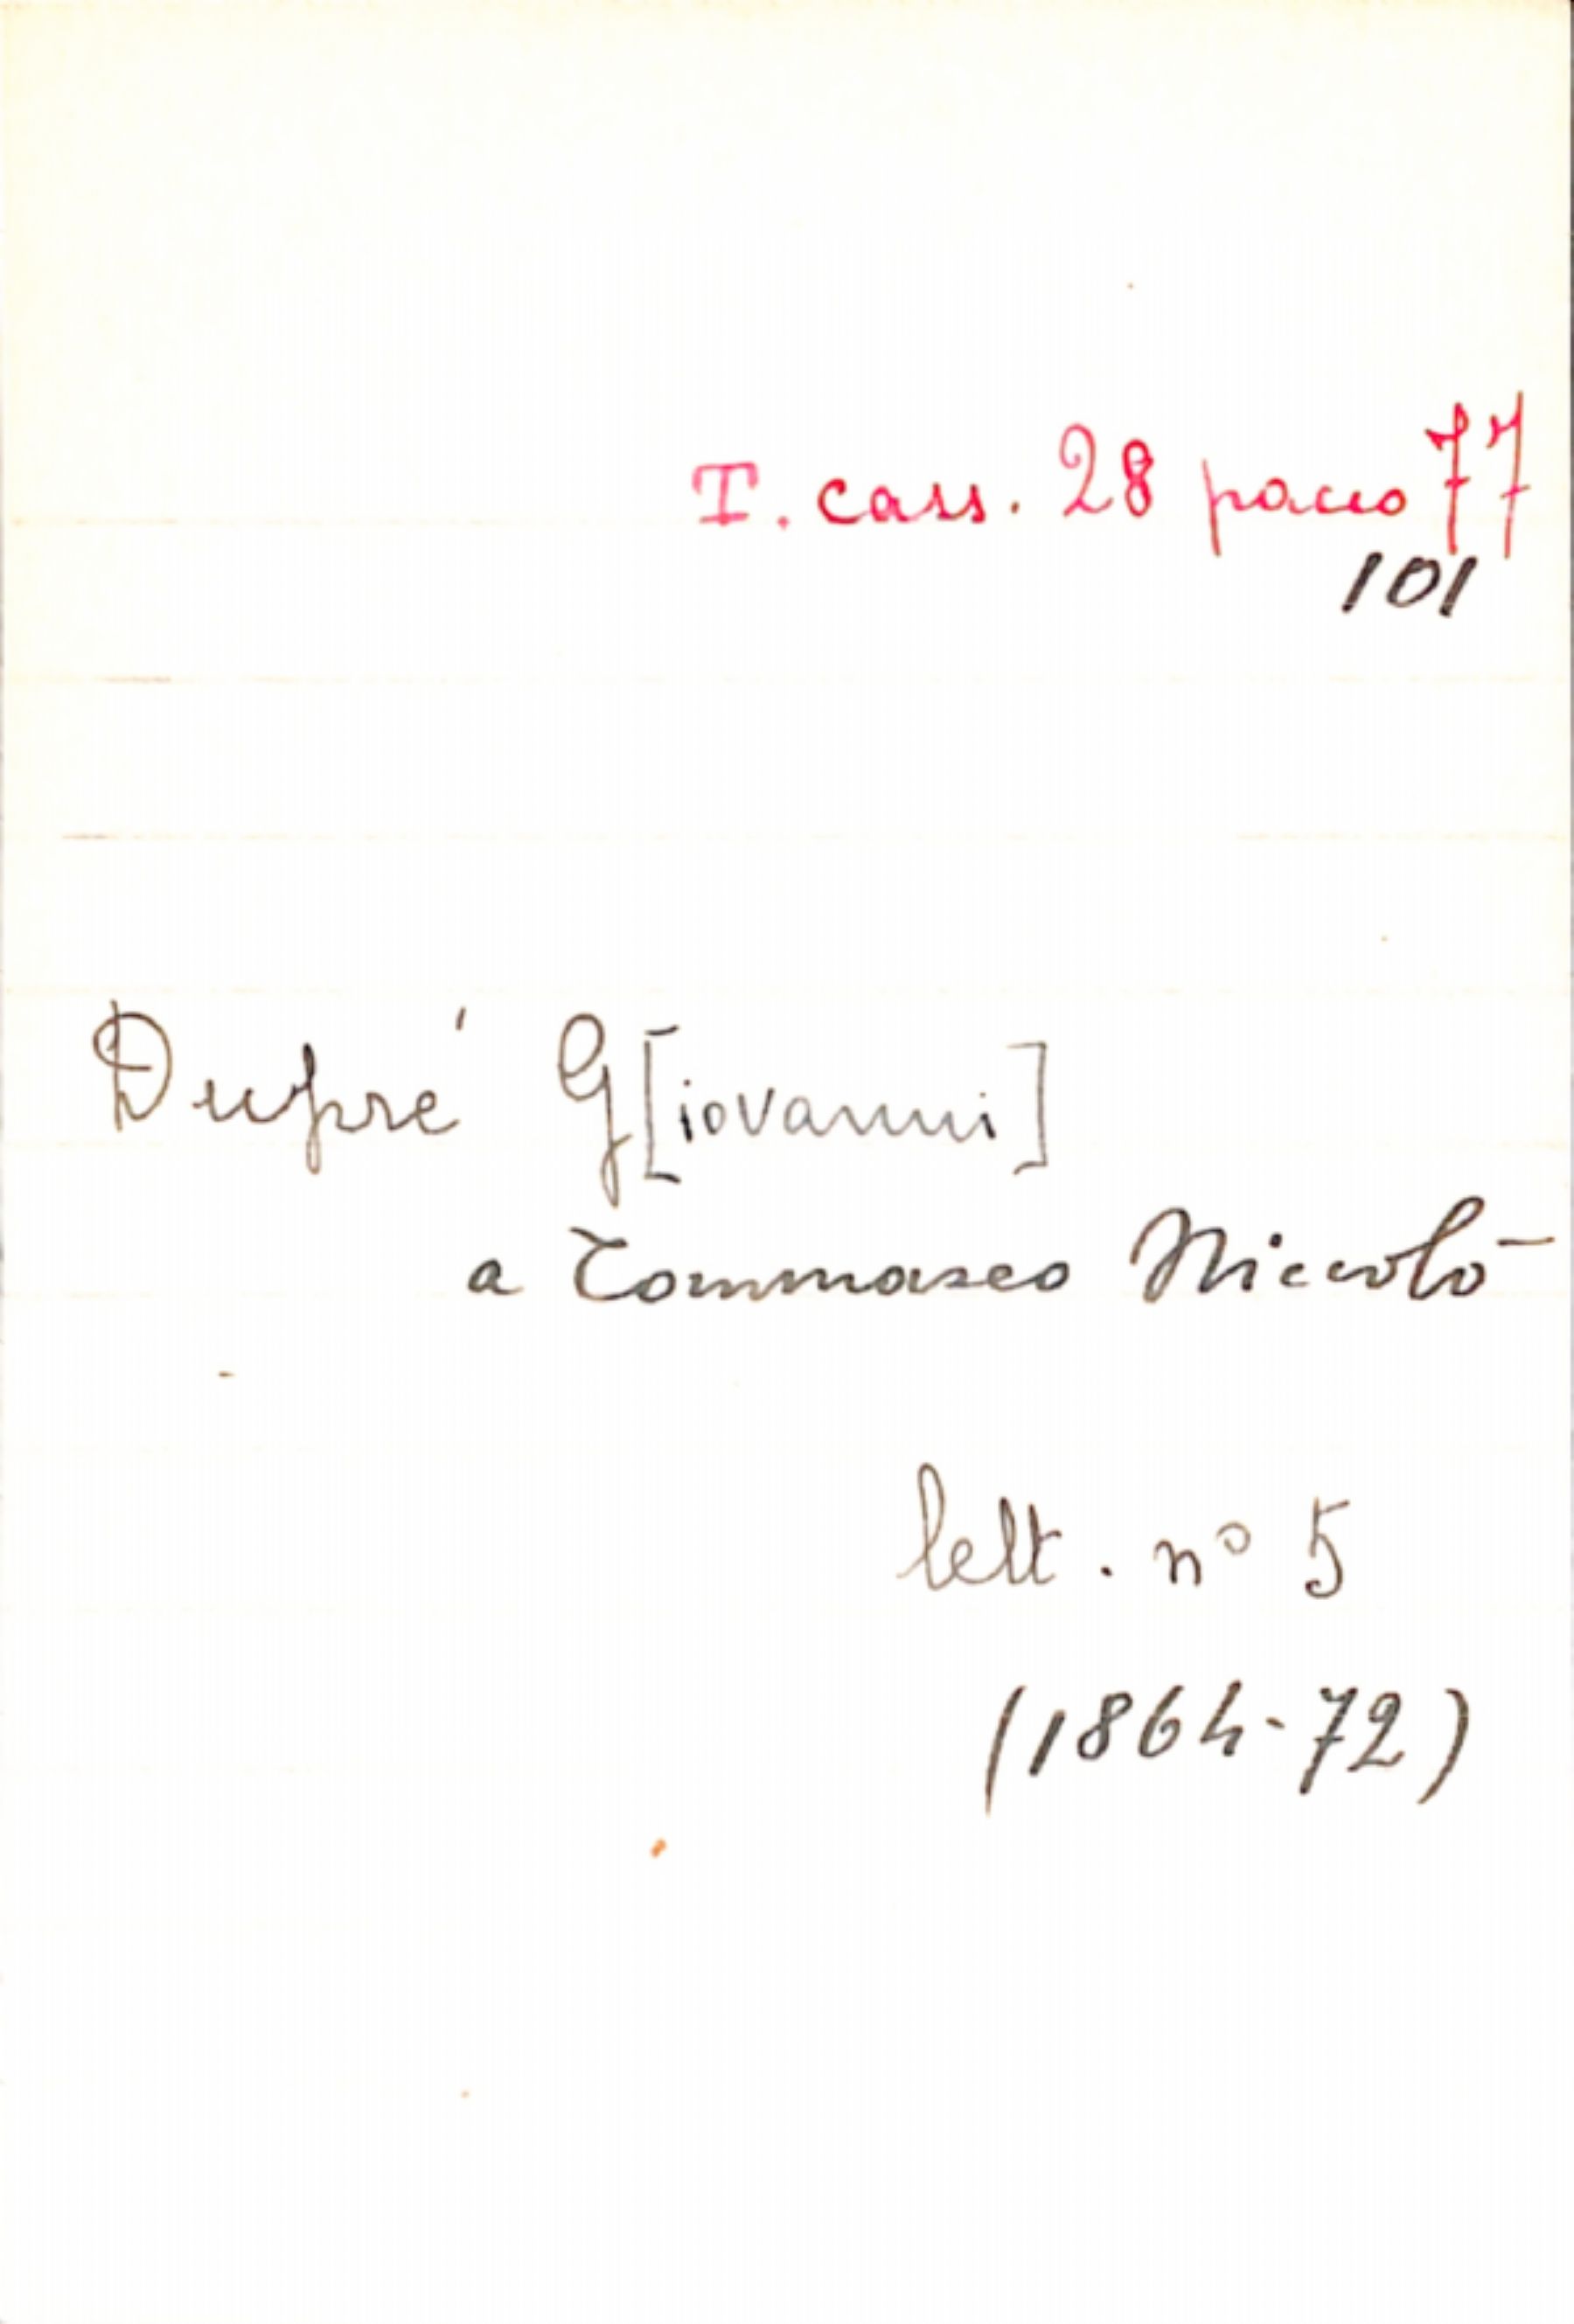 T. cass. 28 pacco 77
101
Dupré G[iovanni]
a Tommaseo Niccolò
lett. nº 5
(1864-72)